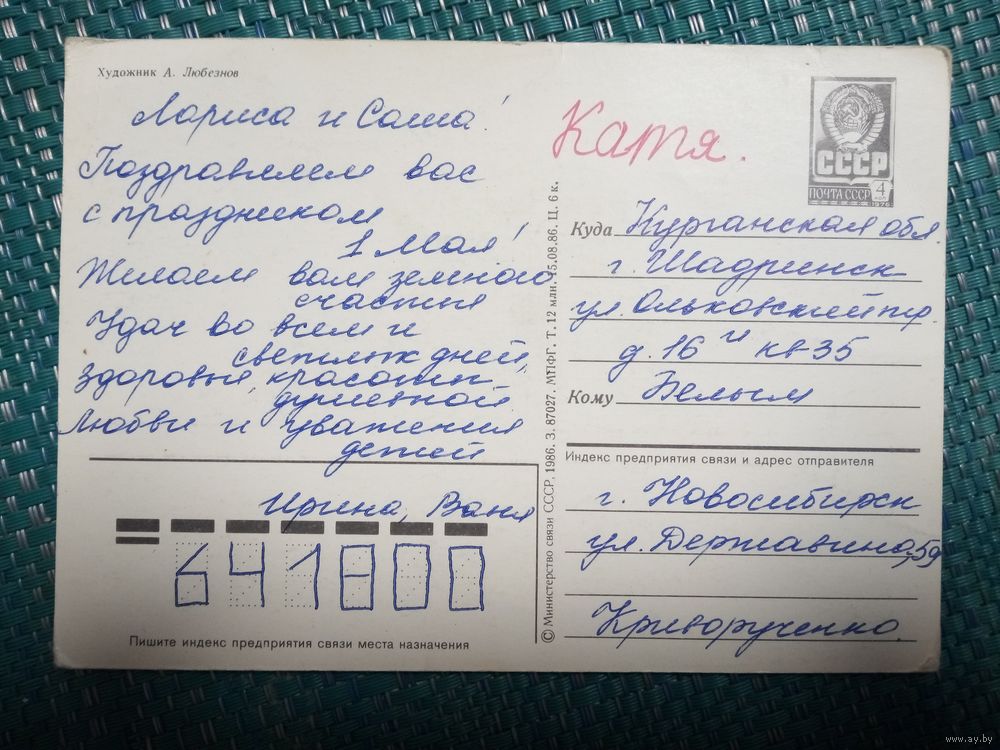 Художник А. Любезнов
Лариса и Саша!
Поздравляем вас
с праздником
1 Мая!
Желаем вам земного
счастья
Удач во всем и
светлых дней,
Здоровья, красоты
душевной
Любви и уважения
детей
Ирина, Ваня
641800
Пишите индекс предприятия связи места назначения
© Министерство связи СССР, 1986. З. 87027. МПФГ. Т. 12 млн. 15.08.86. Ц. 6 к.
Катя.
СССР
ПОЧТА СССР
4
КОП
1976
Куда Курганская обл.
г. Шадринск
ул. Ольховский пр.
д. 16 "и" кв 35
Кому Белым
Индекс предприятия связи и адрес отправителя
г. Новосибирск
ул. Державина, 59
Криворученко.
www.ay.by